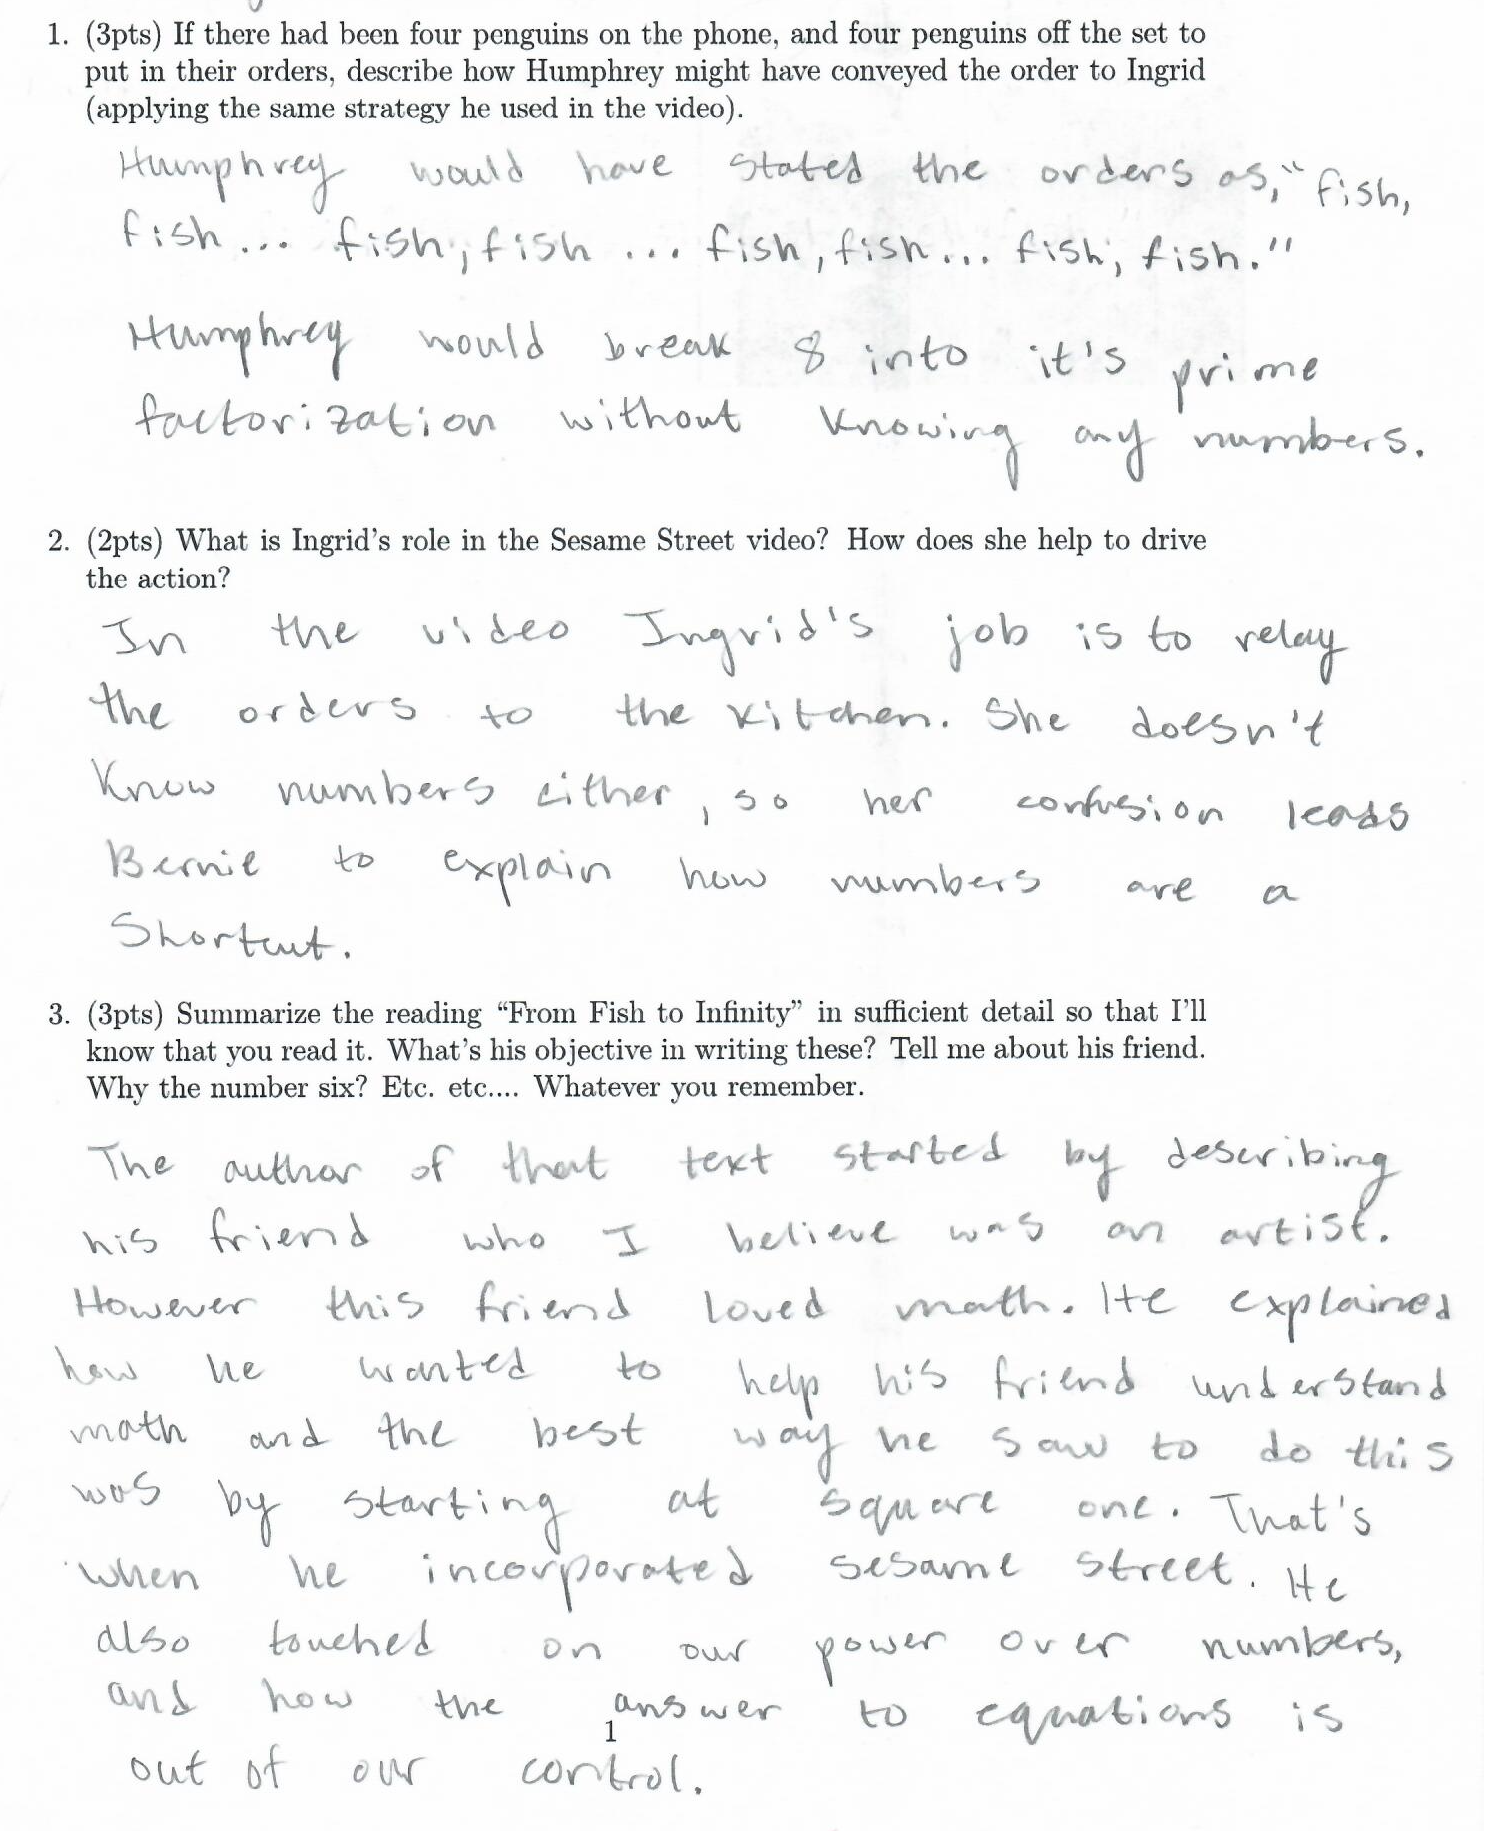 1. (3pts) If there had been four penguins on the phone, and four penguins off the set to
put in their orders, describe how Humphrey might have conveyed the order to Ingrid
(applying the same strategy he used in the video).
Humphrey would have stated the orders as, "fish,
fish... fish, fish ... fish, fish... fish, fish."
Humphrey would break 8 into it's prime
factorization without knowing any numbers.
2. (2pts) What is Ingrid's role in the Sesame Street video? How does she help to drive
the action?
In the video Ingrid's job is to relay
the orders to the kitchen. She doesn't
know numbers either, so her confusion leads
Bernie to explain how numbers are a
Shortcut.
3. (3pts) Summarize the reading "From Fish to Infinity" in sufficient detail so that I'll
know that you read it. What's his objective in writing these? Tell me about his friend.
Why the number six? Etc. etc.... Whatever you remember.
The author of that text started by describing
his friend who I believe was an artist.
However this friend loved math. He explained
how he wanted to help his friend understand
math and the best way he saw to do this
was by starting at square one. That's
when he incorporated sesame street. He
also touched on our power over numbers,
and how the answer to equations is
1
out of our control.